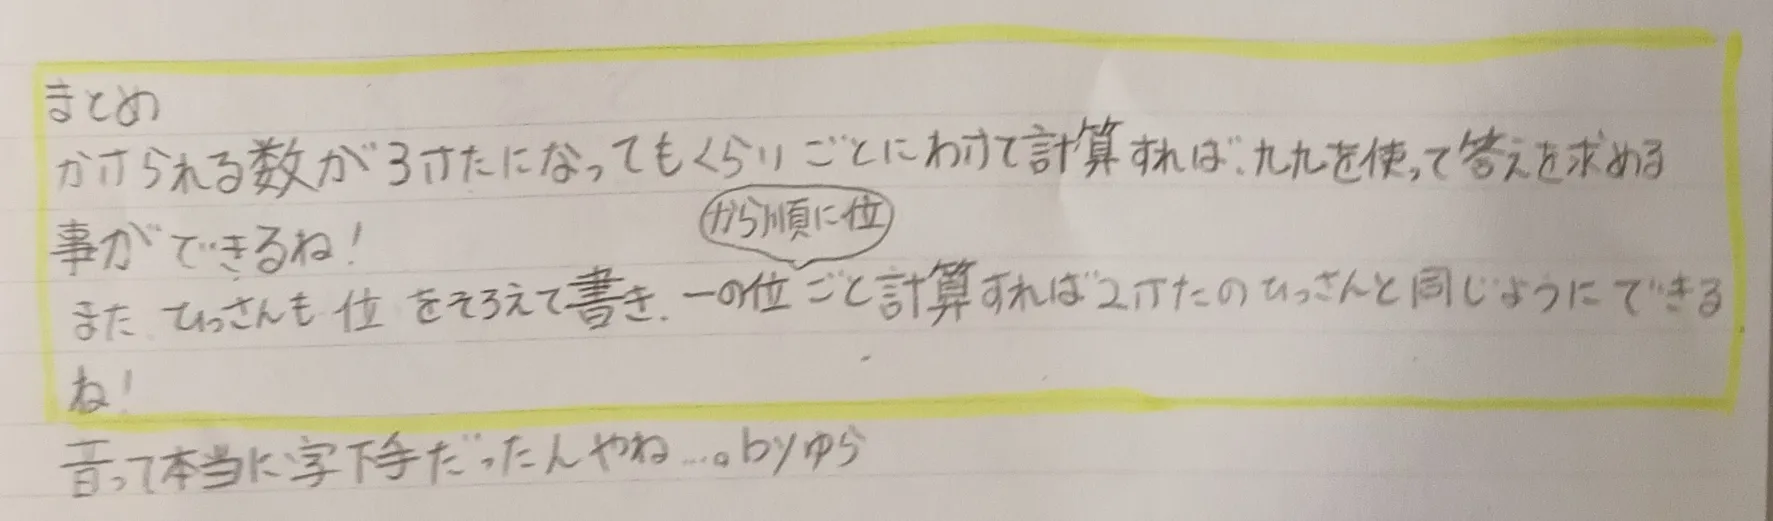 まとめ
かけられる数が3けたになってもくらいごとにわけて計算すれば、九九を使って答えを求める
事ができるね!
から順に位
また、ひっさんも位をそろえて書き、一の位ごと計算すれば2けたのひっさんと同じようにできる
ね!
昔って本当に字下手だったんやね…。byゆら